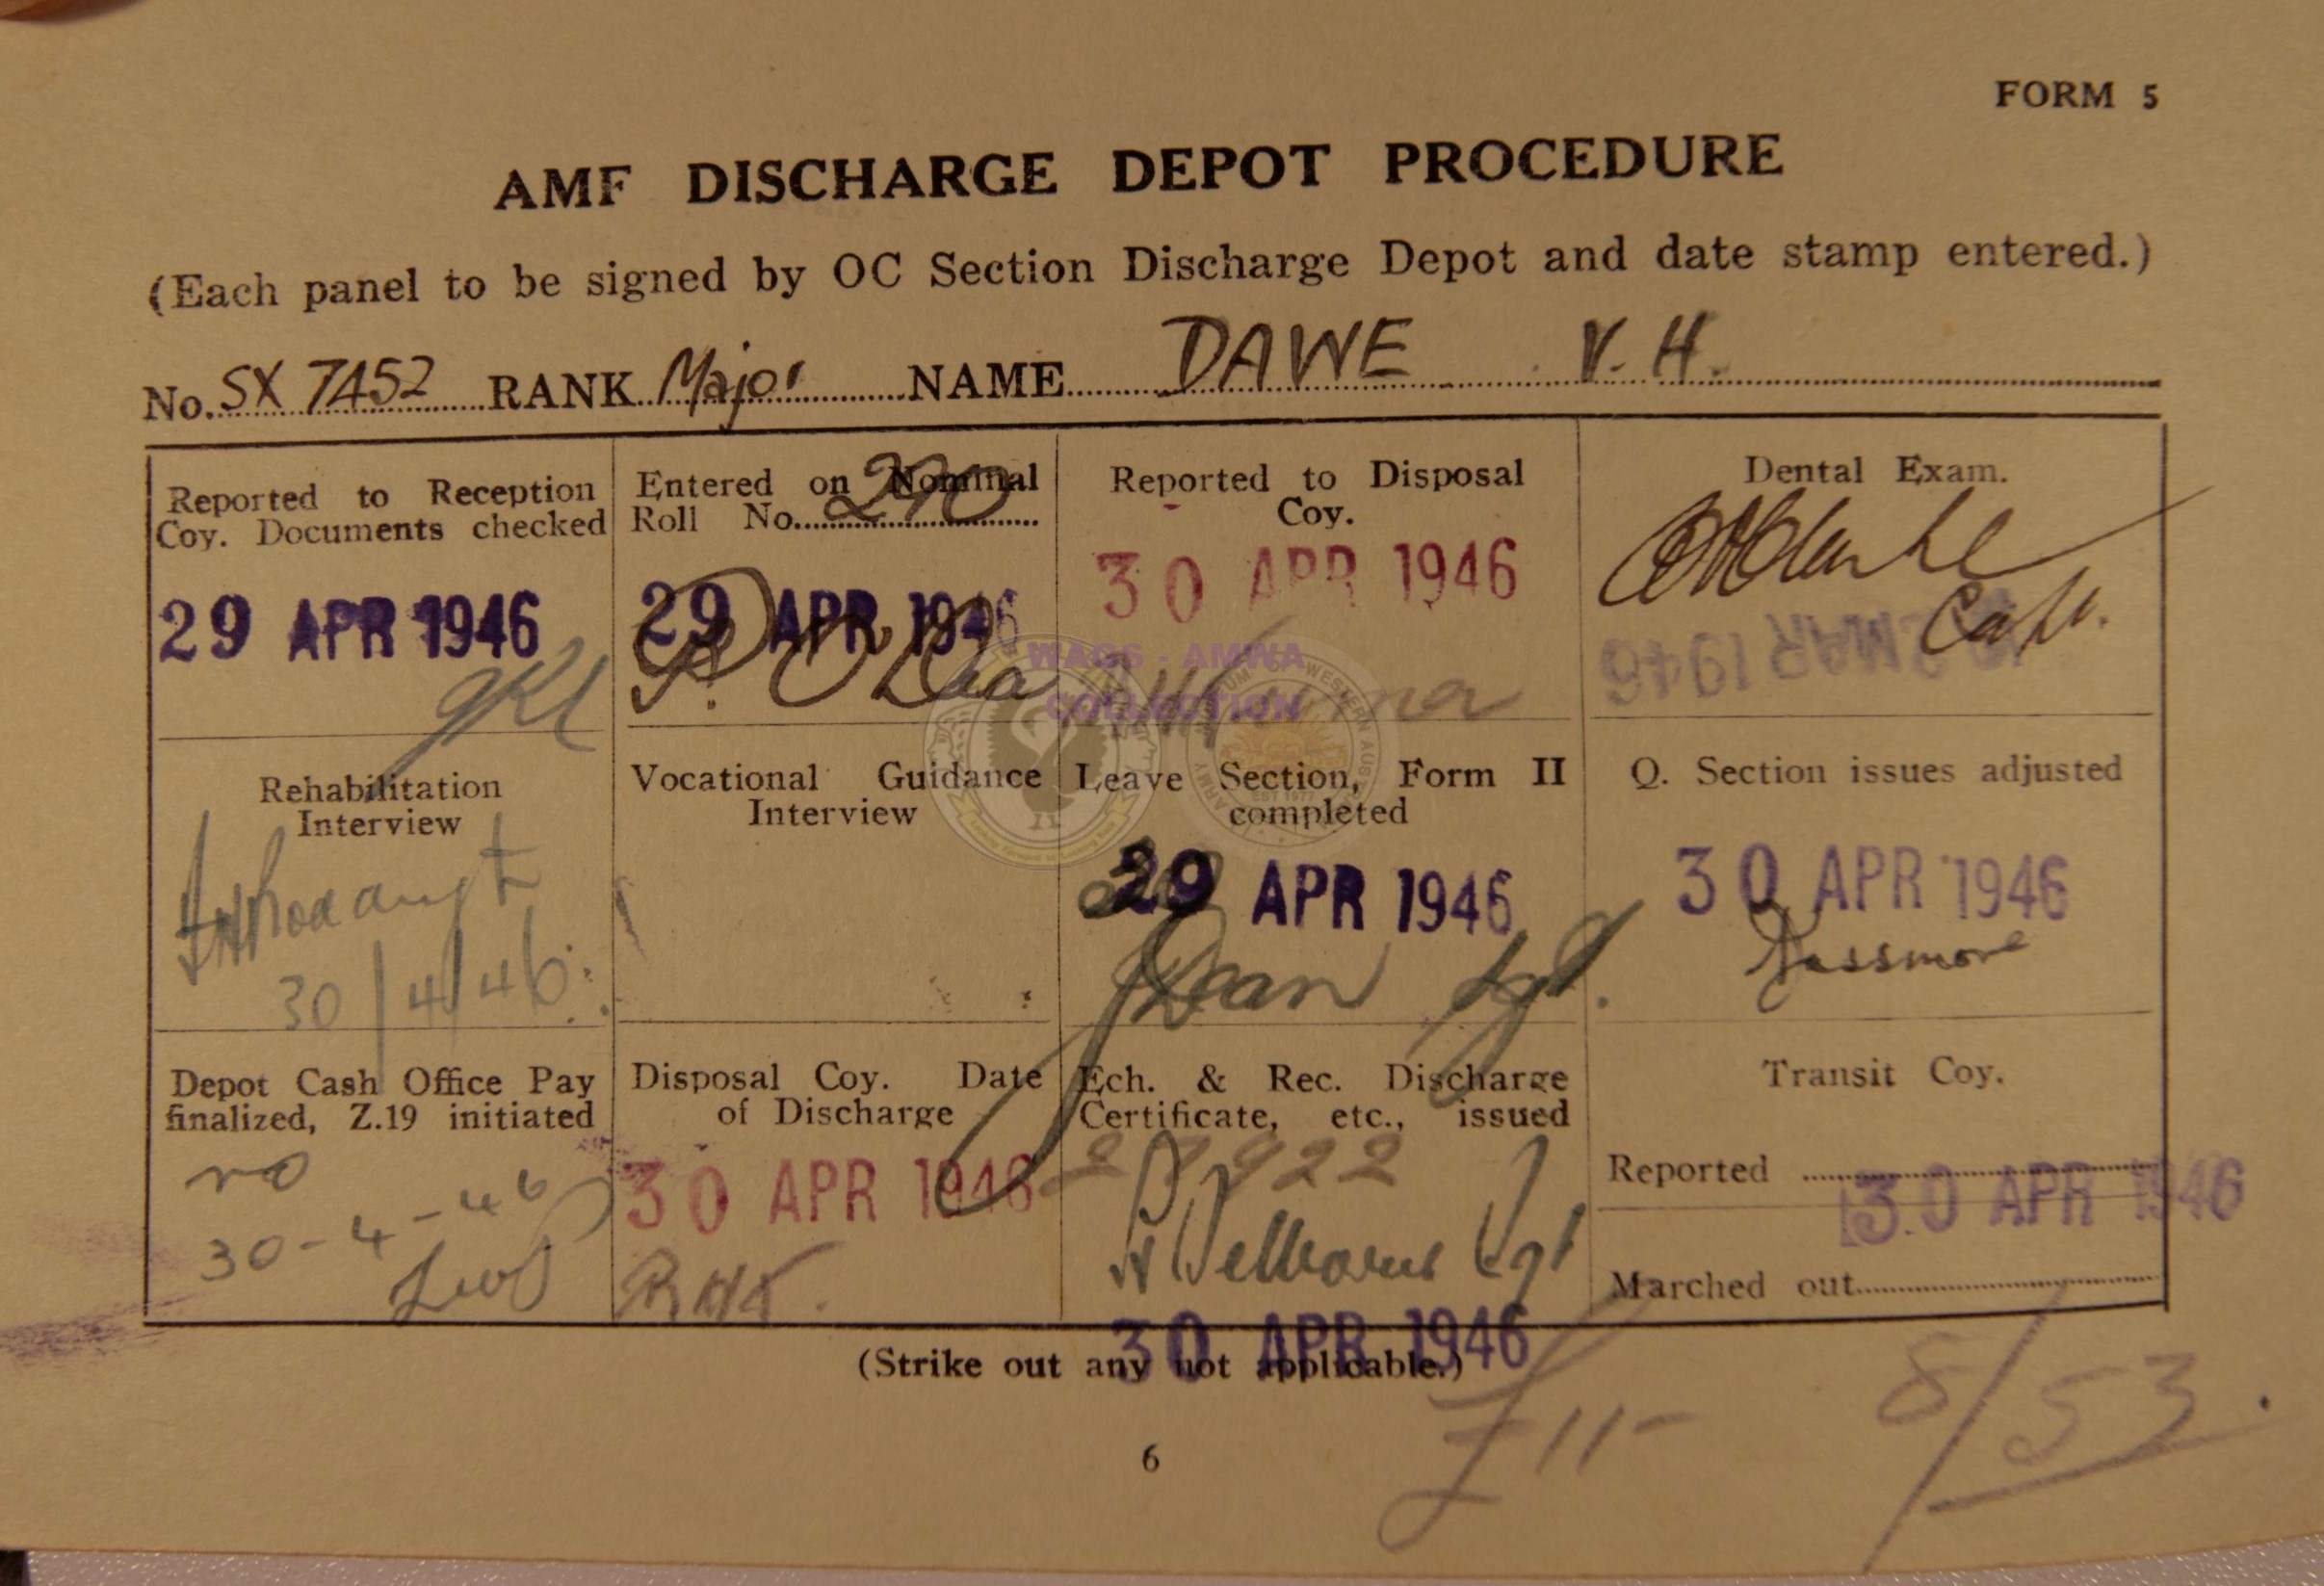 FORM 5
AMF DISCHARGE DEPOT PROCEDURE
(Each panel to be signed by OC Section Discharge Depot and date stamp entered.)
No. SX 7452 RANK Major NAME DAWE V. H.
Reported to Reception
Coy. Documents checked
29 APR 1946
Entered on Nominal
Roll No. 270
29 APR 1946
Reported to Disposal
Coy.
30 APR 1946
Dental Exam.
Capt.
MAR 1946
WAGS - AMWA
COLLECTION
Rehabilitation
Interview
30/4/46.
Vocational Guidance
Interview
Leave Section, Form II
completed
29 APR 1946
Dean Sgt.
Q. Section issues adjusted
30 APR 1946
Passmore
Depot Cash Office Pay
finalized, Z.19 initiated
30-4-46
Disposal Coy. Date
of Discharge
30 APR 1946
Ech. & Rec. Discharge
Certificate, etc., issued
Sgt
30 APR 1946
Transit Coy.
Reported
30 APR 1946
Marched out
(Strike out any not applicable.)
£11-
8/53.
6